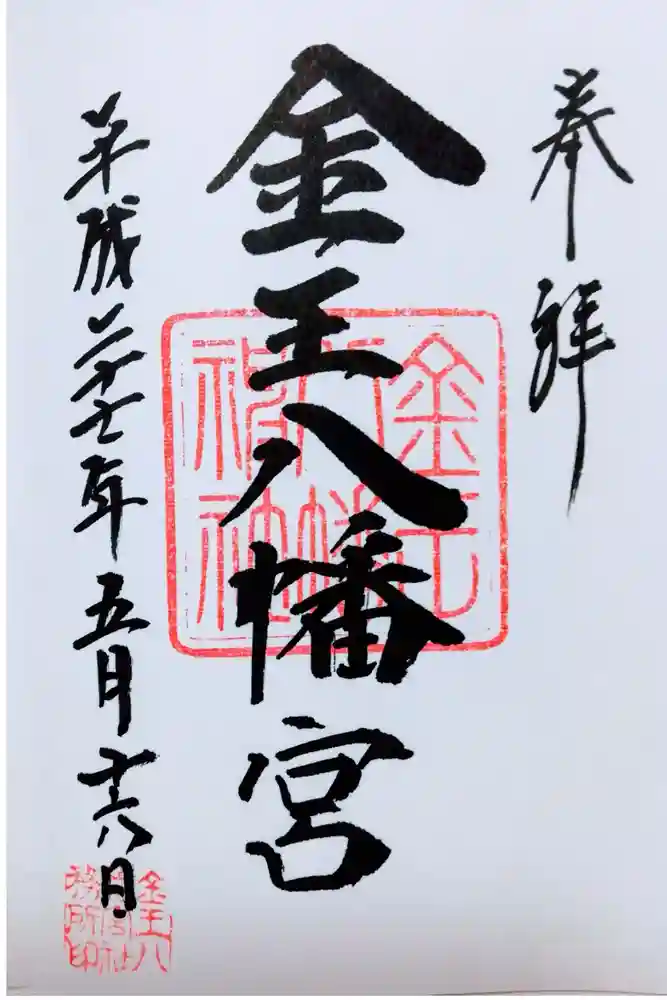 奉拝
金王八幡宮
平成二十七年五月十六日
金王八幡神社
金王八幡宮社務所印